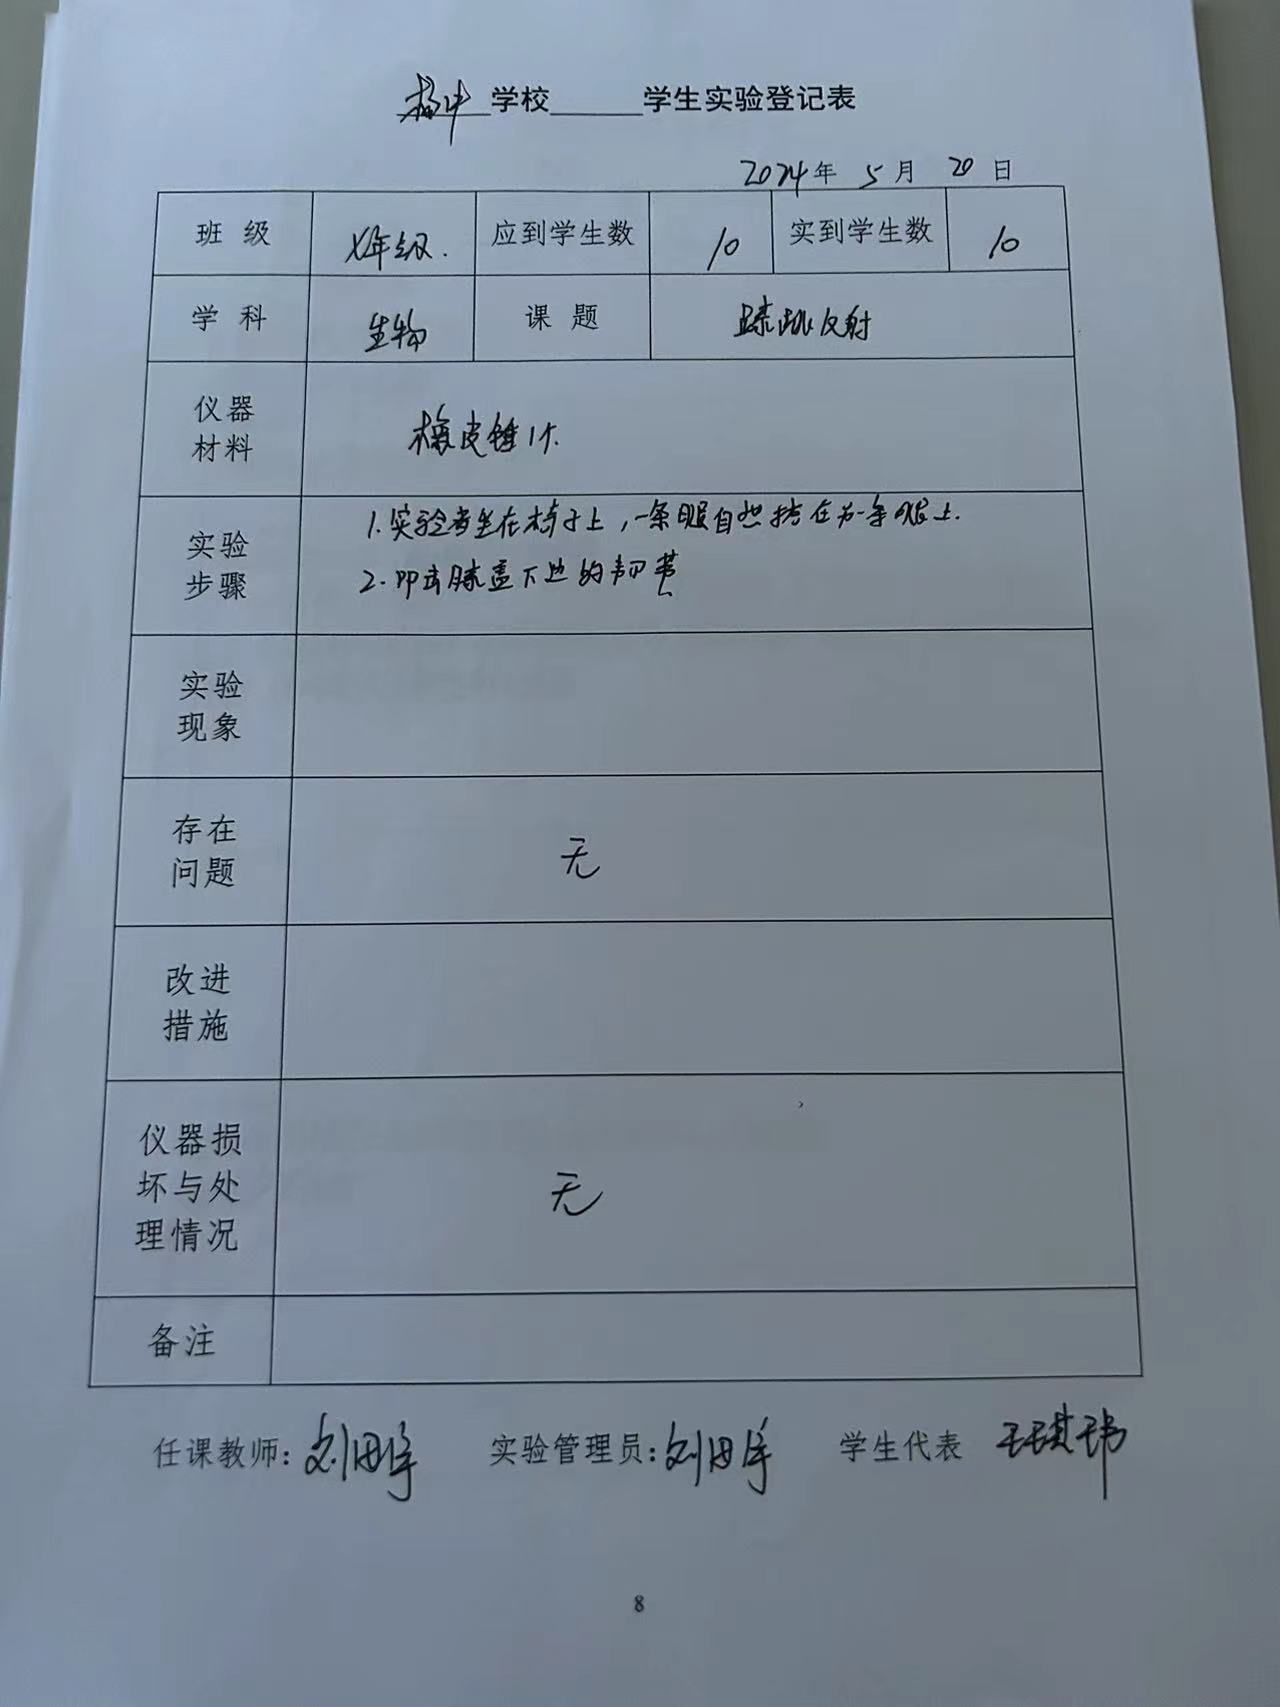 杨中学校______学生实验登记表
2024年 5月 20日
班 级 七年级. 应到学生数 10 实到学生数 10
学 科 生物 课 题 膝跳反射
仪器
材料
橡皮锤1个.
实验
步骤
1.实验者坐在椅子上,一条腿自然搭在另一条腿上.
2.叩击膝盖下边的韧带
实验
现象
存在
问题
无
改进
措施
仪器损
坏与处
理情况
无
备注
任课教师: 刘 实验管理员: 刘 学生代表 王琪玮
8